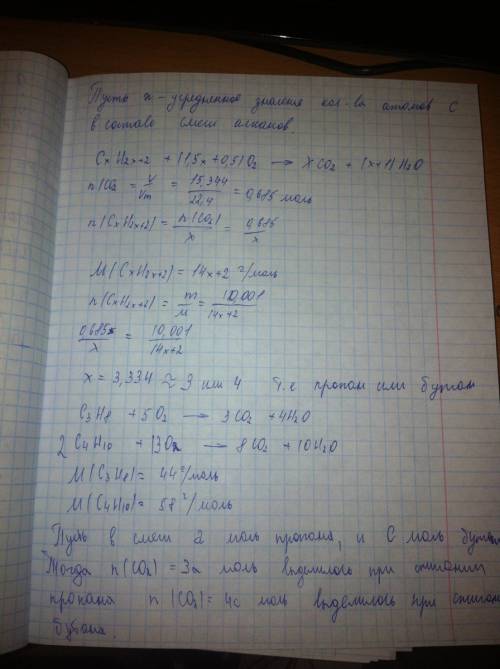 Пусть x - усредненное значение кол-ва атомов C
в составе смеси алканов
CxH2x+2 + (1,5x + 0,5)O2 → xCO2 + (x+1)H2O
n(CO2) = V/Vm = 15,344/22,4 = 0,685 моль
n(CxH2x+2) = n(CO2)/x = 0,685/x
M(CxH2x+2) = 14x+2 г/моль
n(CxH2x+2) = m/M = 10,001/14x+2
0,685/x = 10,001/14x+2
x = 3,334 ≈ 3 или 4 т.е пропан или бутан
C3H8 + 5O2 → 3CO2 + 4H2O
2C4H10 + 13O2 → 8CO2 + 10H2O
M(C3H8) = 44 г/моль
M(C4H10) = 58 г/моль
Пусть в смеси a моль пропана, и C моль
Тогда n(CO2) = 3a моль выделилось при сжигании
пропана n(CO2) = 4c моль выделилось при
бутана.